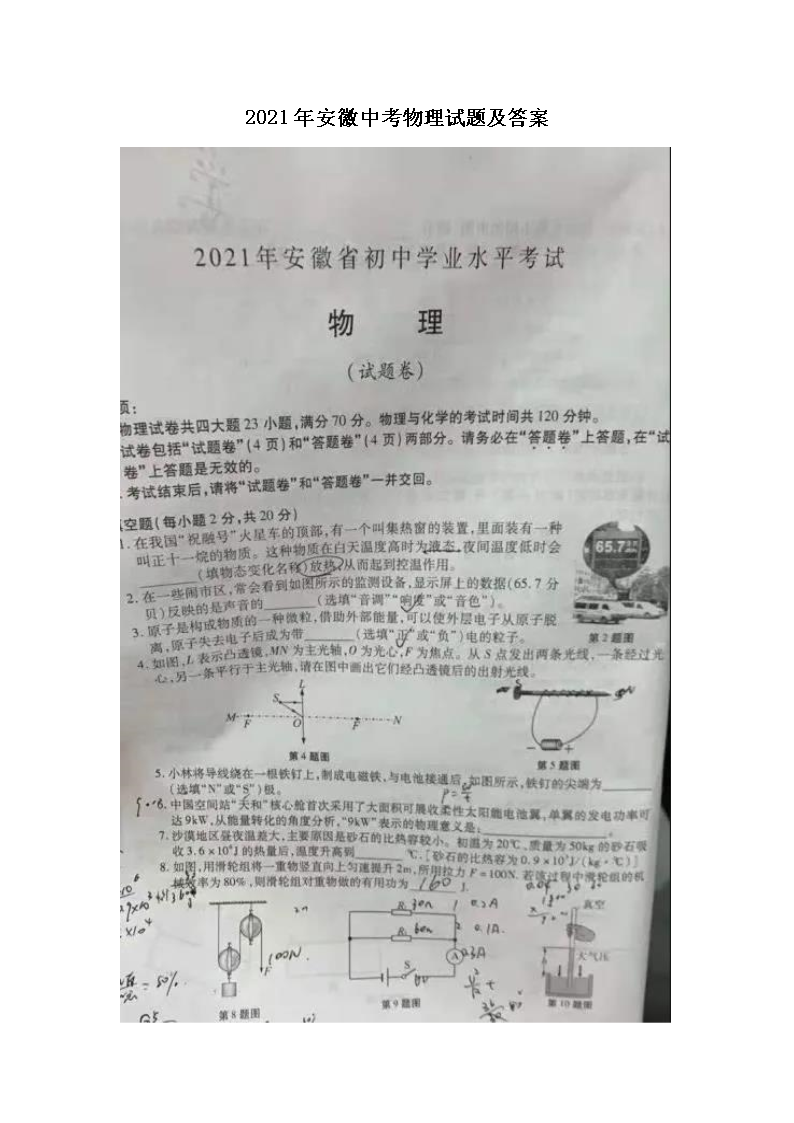 2021年安徽中考物理试题及答案
2021年安徽省初中学业水平考试
物 理
(试题卷)
项:
物理试卷共四大题23小题,满分70分。物理与化学的考试时间共120分钟。
试卷包括“试题卷”(4页)和“答题卷”(4页)两部分。请务必在“答题卷”上答题,在“试
卷”上答题是无效的。
.考试结束后,请将“试题卷”和“答题卷”一并交回。
空题(每小题2分,共20分)
1.在我国“祝融号”火星车的顶部,有一个叫集热窗的装置,里面装有一种
叫正十一烷的物质。这种物质在白天温度高时为液态,夜间温度低时会
______(填物态变化名称)放热,从而起到控温作用。
65.7
2.在一些闹市区,常会看到如图所示的监测设备,显示屏上的数据(65.7分
贝)反映的是声音的______(选填“音调”“响度”或“音色”)。
3.原子是构成物质的一种微粒,借助外部能量,可以使外层电子从原子脱
离,原子失去电子后成为带______(选填“正”或“负”)电的粒子。
第2题图
4.如图,L表示凸透镜,MN为主光轴,O为光心,F为焦点。从S点发出两条光线,一条经过光
心,另一条平行于主光轴,请在图中画出它们经凸透镜后的出射光线。
L
S
M F O F N
S N
- +
第4题图
第5题图
5.小林将导线绕在一根铁钉上,制成电磁铁,与电池接通后,如图所示,铁钉的尖端为______
(选填“N”或“S”)极。
6.中国空间站“天和”核心舱首次采用了大面积可展收柔性太阳能电池翼,单翼的发电功率可
达9kW,从能量转化的角度分析,“9kW”表示的物理意义是:______。
7.沙漠地区昼夜温差大,主要原因是砂石的比热容较小。初温为20℃、质量为50kg的砂石吸
收3.6×10⁵J的热量后,温度升高到______℃.[砂石的比热容为0.9×10³J/(kg·℃)]
8.如图,用滑轮组将一重物竖直向上匀速提升2m,所用拉力F=100N.若该过程中滑轮组的机
械效率为80%,则滑轮组对重物做的有用功为 160 J.
R₁ 30Ω 0.2A
R₂ 60Ω 0.1A
A 0.3A
S
100N
F
真空
大气压
h
第8题图
第9题图
第10题图